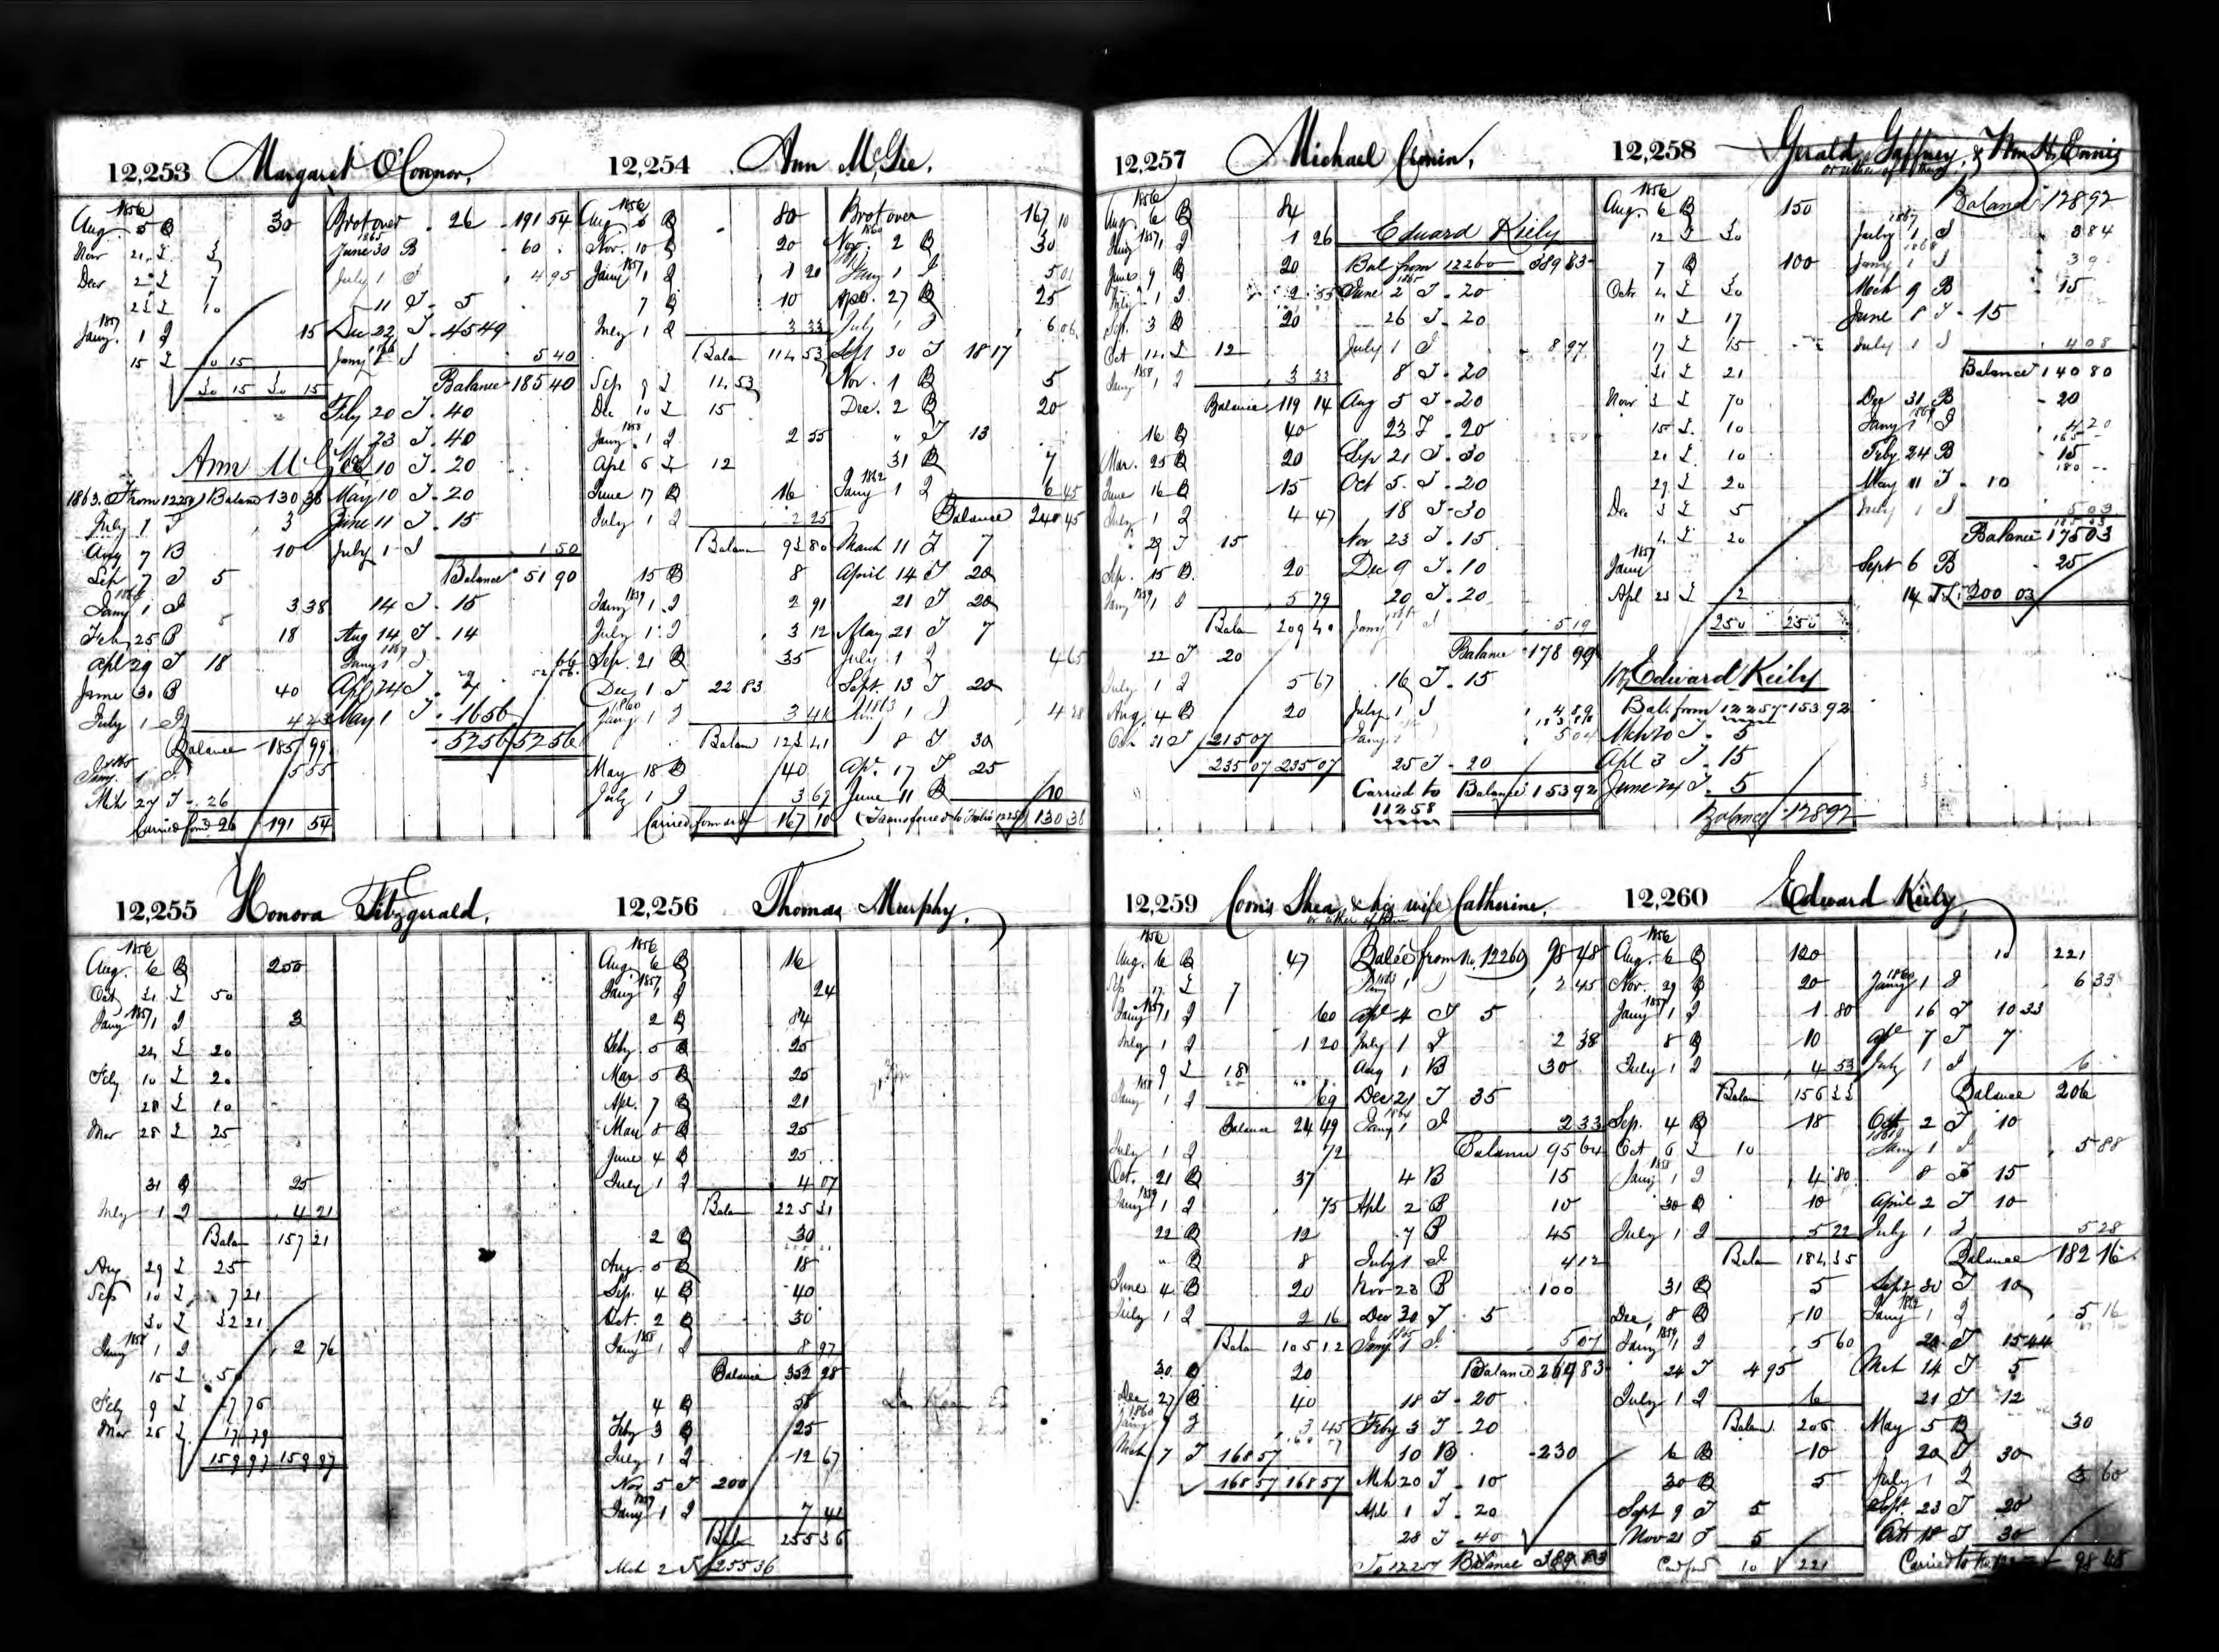 12,253 Margaret O'Connor.
1856
Aug. 5 B 30
Nov 21 L 3
Decr 2 L 7
23 L 10
1857
Jany. 1 I 15
15 L 10 15
30 15 30 15
Ann McGee
1863. From 12254 Balance 130 38
July 1 I 3
Aug 7 B 10
Sep 7 T 5
Jany 1 I 3 38
Feb 25 B 18
Apl 29 T 18
June 30 B 40
July 1 I 4 23
Balance 185 99
1865
Jany. 1 I 5 55
Mch 27 T 26
Carried ford 26 191 54
Brot over 26 191 54
1865
June 30 B 60
July 1 I 4 95
11 T 5
Dec 22 T 45 49
1866
Jany 1 I 5 40
Balance 185 40
Feby 20 T 40
23 T 40
10 T 20
May 10 T 20
June 11 T 15
July 1 I 1 50
Balance 51 90
14 T 15
Aug 14 T 14
1867
Jany 1 I 66
Apl 24 T
May 1 T 16 56
52 56 52 56
12,254 Ann McGee.
1856
Aug 5 B 80
Nov. 10 B 20
1857
Jany 1 I 1 20
7 B 10
July 1 I 3 33
Balan 114 53
Sep 9 L 11.53
Dec 10 L 15
1858
Jany 1 I 2 55
Apl 6 L 12
June 17 B 16
July 1 I 2 25
Balan 93 80
15 B 8
1859
Jany 1 I 2 91
July 1 I 3 12
Sep. 21 B 35
Dec 1 T 22 83
1860
Jany 1 I 3 41
Balan 123 41
May 18 B 40
July 1 I 3 69
Carried forward 167 10
Brot over 167 10
1860
Nov. 2 B 30
Jany 1 I 5 01
Apl. 27 B 25
July 1 I 6 06
Sept 30 T 18 17
Nov. 1 B 5
Dec. 2 B 20
" T 13
31 B 7
1862
Jany 1 I 6 45
Balance 240 45
March 11 T 7
April 14 T 20
21 T 20
May 21 T 7
July 1 I 4 65
Sept. 13 T 20
1863
Jany 1 I 4 28
8 T 30
Ap. 17 T 25
June 11 B 10
Transferred to Folio 12253 130 38
12,255 Honora Fitzgerald.
1856
Aug. 6 B 250
Oct 31 L 50
1857
Jany 1 I 3
24 L 20
Feby 10 L 20
28 L 10
Mar 28 L 25
31 B 25
July 1 I 4 21
Balan 157 21
Aug 29 L 25
Sep 10 L 7 21
30 L 32 21
1858
Jany 1 I 2 76
15 L 50
Feby 9 L
Mar 26 L 17 79
159 97 159 97
12,256 Thomas Murphy.
1856
Aug. 6 B 16
1857
Jany 1 I 24
2 B 84
Feby. 5 B 25
Mar 5 B 25
Apl. 7 B 21
May 8 B 25
June 4 B 25
July 1 I 4 07
Balan 225 31
2 B 30
Aug. 5 B 18
Sep. 4 B 40
Oct. 2 B 30
1858
Jany 1 I 8 97
Balance 352 28
4 B 58
Feby 3 B 25
July 1 I 12 67
Nov 5 T 200
1859
Jany 1 I 7 41
Balan 255 36
Mch 2 T 255 36
12,257 Michael Cronin.
1856
Aug 6 B 84
Jany 1857 1 I 1 26
June 9 B 20
July 1 I 2 55
Sep. 3 B 20
Oct 14 L 12
1858
Jany 1 I 3 33
Balance 119 14
16 B 40
Mar. 25 B 20
June 16 B 15
July 1 I 4 47
29 T 15
Sep. 15 B 20
1859
Jany 1 I 5 79
Balan 209 40
22 T 20
July 1 I 5 67
Aug. 4 B 20
Oct 21 T 215 07
235 07 235 07
Edward Kiely
Bal from 12260 389 83
1865
June 2 T 20
26 T 20
July 1 I 8 97
8 T 20
Aug 5 T 20
23 T 20
Sep 21 T 30
Oct 5 T 20
18 T 30
Nov 23 T 15
Dec 9 T 10
20 T 20
Jany 1 I 5 19
Balance 178 99
16 T 15
July 1 I 4 89
Jany 1 5 04
25 T 20
Carried to Balance 153 92
11258
12,258 Gerald Gaffney, & Wm H. Ennis
or either of them
1856
Aug. 6 B 150
12 L 30
7 B 100
Octr 4 L 30
11 L 17
17 L 15
31 L 21
Nov 3 L 70
15 L 10
21 L 10
29 L 20
Dec 3 L 5
4 L 20
1857
Jany
Apl 23 L 2
250 250
Edward Kiely
Bal. from 12257 153 92
Mch 20 T 5
Apl 3 T 15
June 24 T 5
Balance 128 92
Balance 128 92
1867
July 1 I 3 84
1868
Jany 1 I 3 9
Mch 9 B 15
June 8 T 15
July 1 I 4 08
Balance 140 80
Dec 31 B 20
1869
Jany 1 I 4 20
Feby 24 B 15
May 11 T 10
July 1 I 5 03
Balance 175 03
Sept 6 B 25
14 T 200 03
12,259 Corns Shea & his wife Catherine.
or either of them
1856
Aug. 6 B 47
Sep 17 L 7
Jany 1857 1 I 60
July 1 I 1 20
9 L 18
1858
Jany 1 I 69
Balance 24 49
July 1 I 72
Oct. 21 B 37
1859
Jany 1 I 75
22 B 12
" B 8
June 4 B 20
July 1 I 2 16
Balan 105 12
30 B 20
Dec 27 B 40
1860
Jany 1 I 3 45
Mch 7 T 168 57
168 57 168 57
Balce from No. 12260 98 48
1863
Jany 1 I 2 45
Apl 4 T 5
July 1 I 2 38
Aug 1 B 30
Dec 21 T 35
1864
Jany 1 I 2 33
Balance 95 64
4 B 15
Apl 2 B 10
7 B 45
July 1 I 4 12
Nov 23 B 100
Dec 30 T 5
1865
Jany 1 I 5 07
Balance 269 83
18 T 20
Feby 3 T 20
10 B 230
Mch 20 T 10
Apl 1 T 20
28 T 40
To 12257 Balance 389 83
12,260 Edward Kiely
1856
Aug. 6 B 120
Nov. 29 B 20
1857
Jany 1 I 1 80
8 B 10
July 1 I 4 53
Balan 156 33
Sep. 4 B 18
Oct 6 L 10
1858
Jany 1 I 4 80
30 B 10
July 1 I 5 22
Balan 184 35
31 B 5
Dec, 8 B 10
1859
Jany 1 I 5 60
24 T 4 95
July 1 I 6
Balan 206
6 B 10
30 B 5
Sept 9 T 5
Nov 21 T 5
Card ford 10 221
10 221
1860
Jany 1 I 6 33
16 T 10 33
Apl 7 T 7
July 1 I 6
Balance 206
Oct 2 T 10
1861
Jany 1 I 5 88
8 T 15
April 2 T 10
July 1 I 5 28
Balance 182 16
Sept 30 T 10
1862
Jany 1 I 5 16
20 T 15 44
Mch 14 T 5
21 T 12
May 5 B 30
20 T 30
July 1 I 3 60
Sept. 23 T 20
Oct 18 T 30
Carried to 98 48